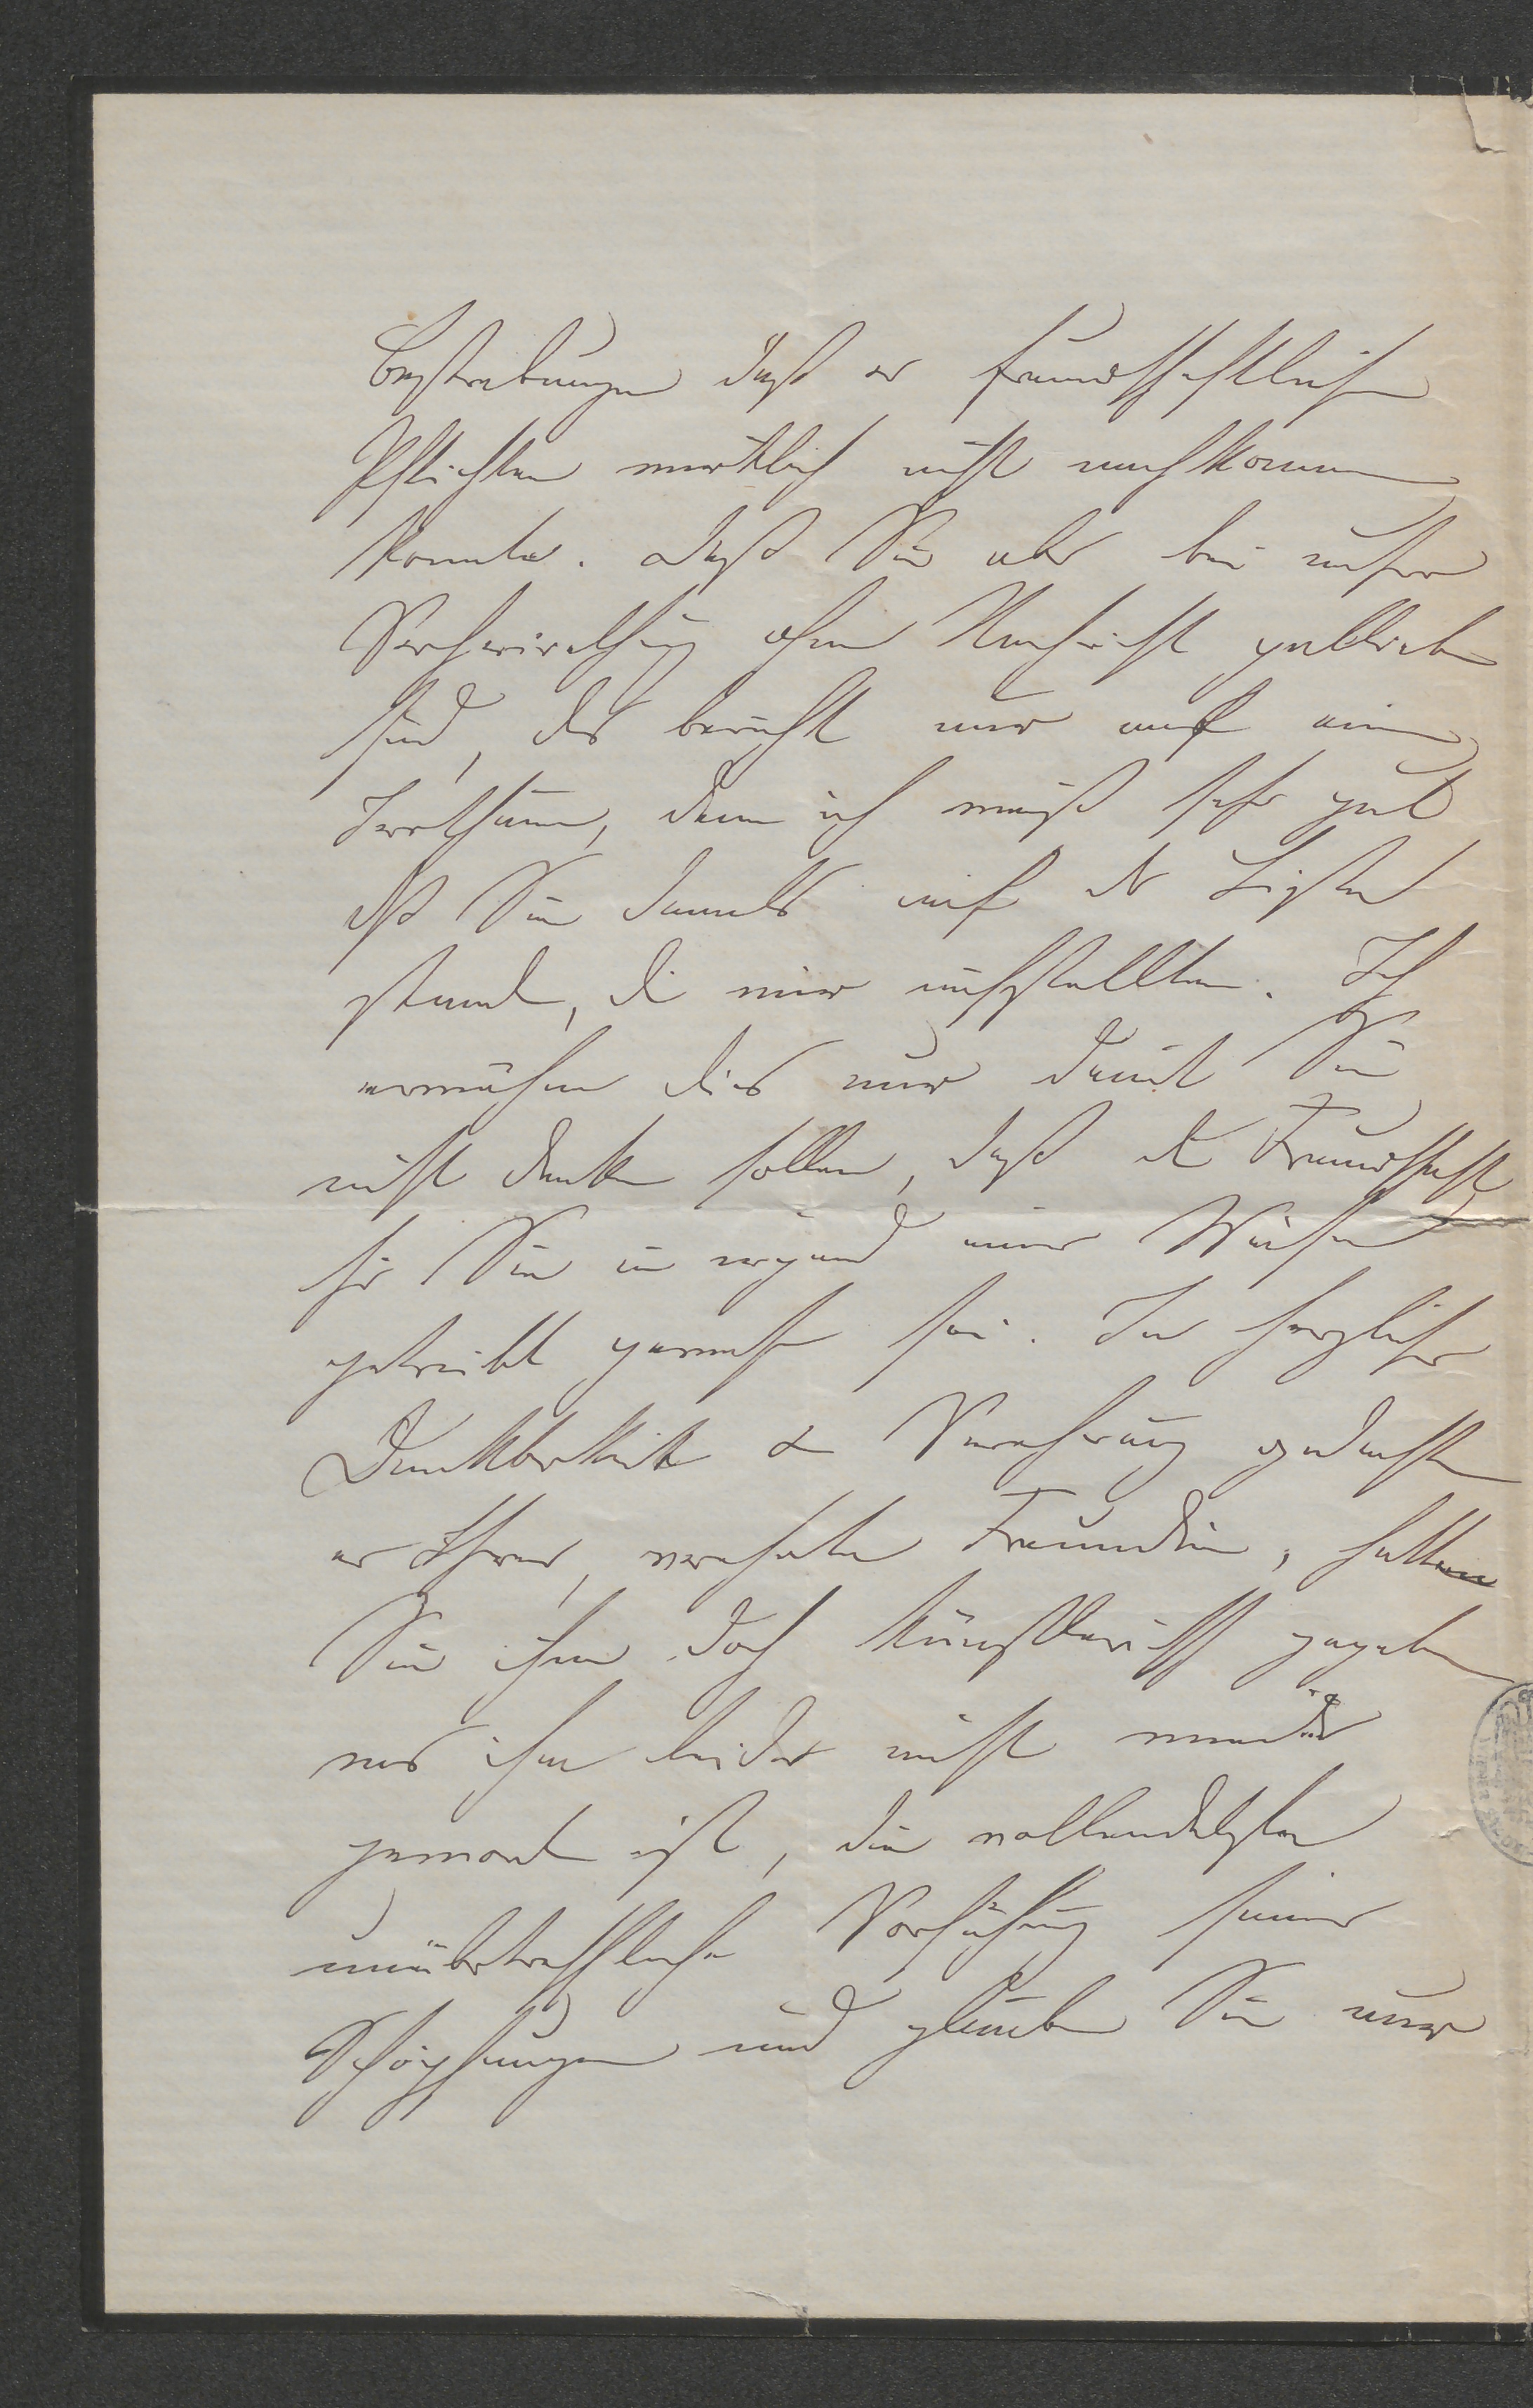 Bestrebungen daß er freundschaftlichen
Pflichten wirklich nicht nachkommen
konnte. Daß Sie aber bei unsrer
Verheirathung ohne Nachricht geblieben
sind, das beruht nur auf einem
Irrthum, denn ich weiß sehr gut
daß Sie damals auf der Liste
standen, die wir aufstellten. Ich
erwähne dies nur damit Sie
nicht denken sollen, daß die Freundschaft
für Sie in irgend einer Weise
getrübt gewesen sei. In herzlicher
Dankbarkeit & Verehrung gedachte
er Ihrer, verehrte Freundin, hatten
Sie ihm doch künstlerisch gegeben
was ihm leider nicht wieder
geworden ist, die vollendetste
unübertreffliche Vorführung seiner
Schöpfungen und glauben Sie mir